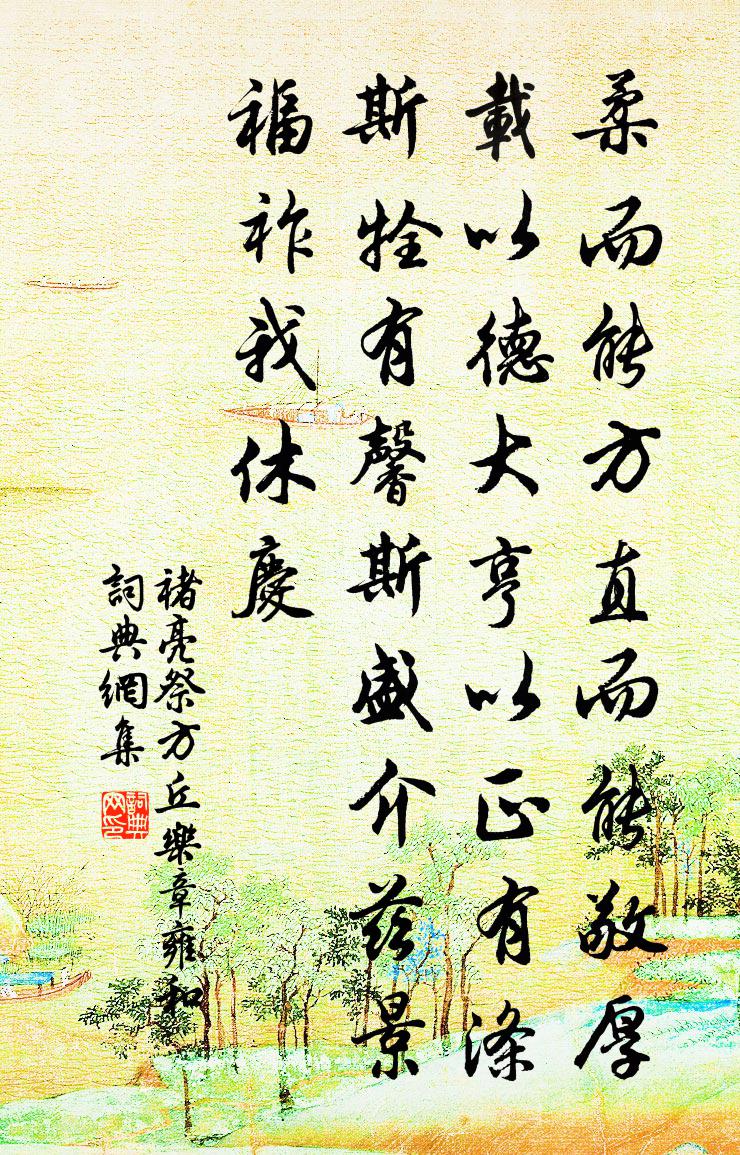 柔而能方直而能敬厚
載以德大亨以正有滌
斯牷有馨斯盛介茲景
福祚我休慶
褚亮祭方丘樂章雍和
詞典網集
詞典
网印